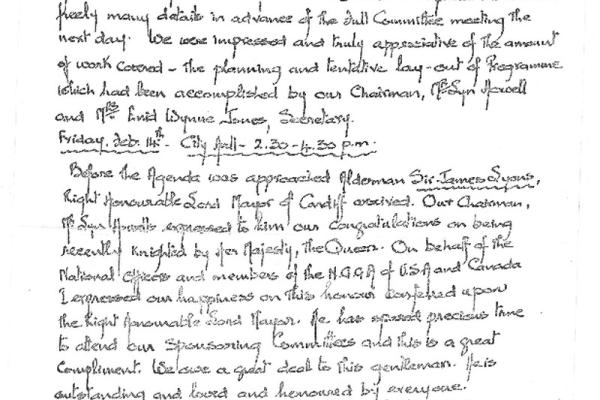 freely many details in advance of the Full Committee meeting the
next day. We were impressed and truly appreciative of the amount
of work covered - the planning and tentative lay-out of Programme
which had been accomplished by our Chairman, Mr Lyn Howell
and Mrs Enid Wynne Jones, Secretary.
Friday, Feb. 14th - City Hall - 2.30 - 4.30 p.m.
Before the Agenda was approached Alderman Sir James Lyons,
Right Honourable Lord Mayor of Cardiff arrived. Our Chairman,
Mr Lyn Howell expressed to him our congratulations on being
recently Knighted by Her Majesty, The Queen. On behalf of the
National Officers and members of the N.G.G.A of U.S.A and Canada
I expressed our happiness on this honour conferred upon
the Right Honourable Lord Mayor. He has spared precious time
to attend our Sponsoring Committees and this is a great
Compliment. We owe a great deal to this gentleman. He is
outstanding and loved and honoured by everyone.